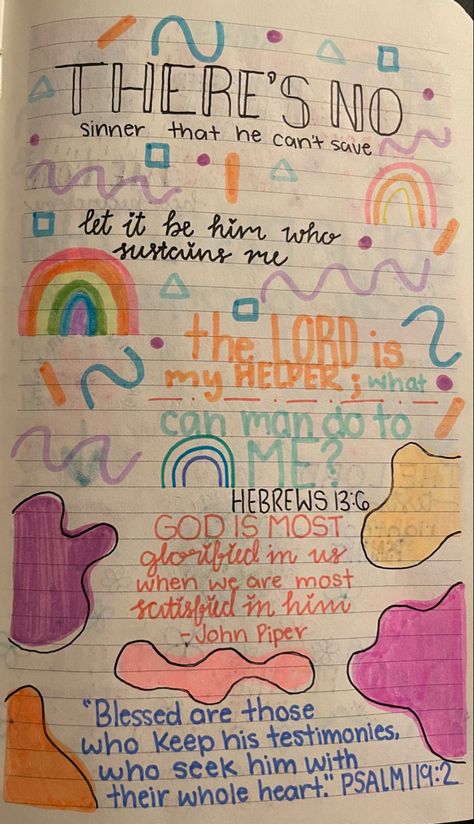 THERE'S NO
sinner that he can't save
let it be him who
sustains me
the LORD is
my HELPER; what
can man do to
ME?
HEBREWS 13:6
GOD IS MOST
glorified in us
when we are most
satisfied in him
-John Piper
"Blessed are those
who keep his testimonies,
who seek him with
their whole heart." PSALM 119:2